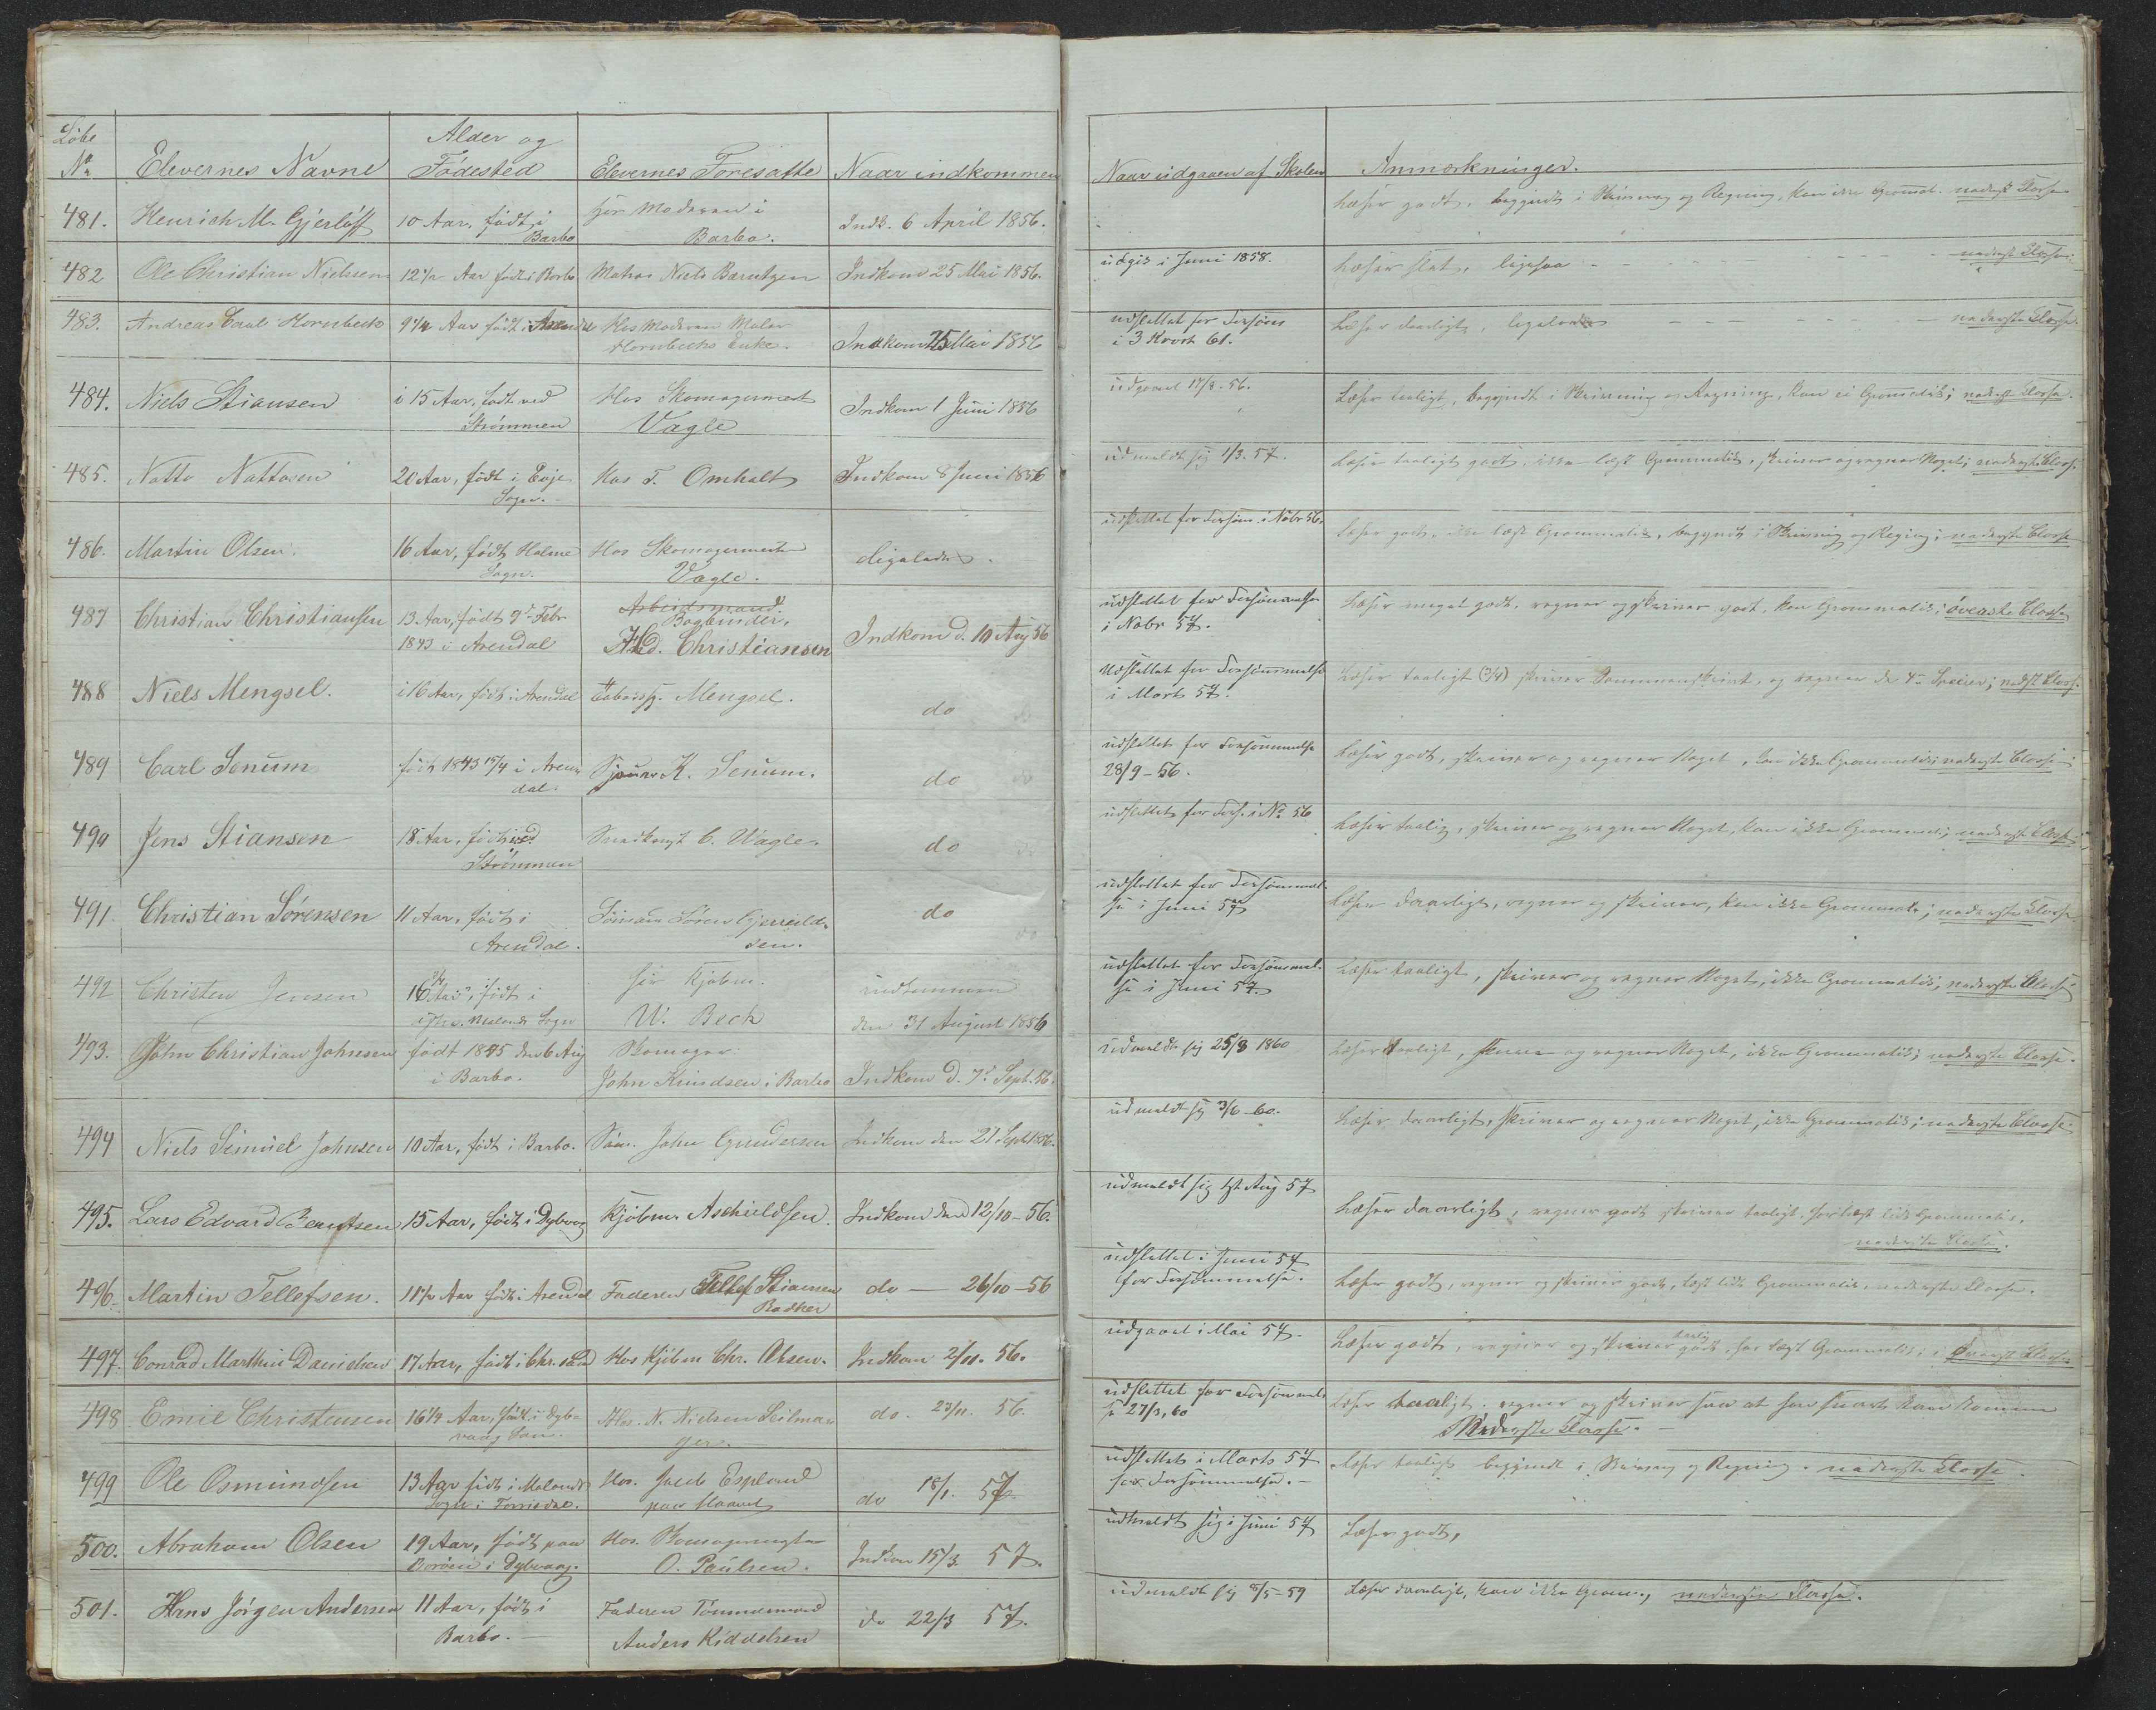 Løbe
No
Elevernes Navne
Alder og
Fødested
Elevernes Foresatte
Naar indkommen
Naar udgaaen af Skolen
Anmærkninger.
481. Henrich M. Gjerløff 10 Aar, født i Hos Moderen i Indk. 6 April 1856. Læser godt, begyndt i Skrivning og Regning, kan ikke Grammat. nederst Classe
Barbo Barbo.
482 Ole Christian Nielsen 12 1/2 Aar født i Barbo Matros Niels Berntzen Indkom 25 Mai 1856. udgik i Juni 1858. Læser slet, ligesaa - - - nederst Classe.
483. Andreas Carl Hornbeck 9 1/2 Aar født i Arendal Hos Moderen Maler Indkom 25 Mai 1856 udslettet for Forsøm Læser daarligt, ligeledes - - - nederste Classe.
Hornbecks Enke. i 3 Kvart 61.
484. Niels Stiansen i 15 Aar, født ved Hos Skomagermest Indkom 1 Juni 1856 udgaaet 17/8. 56. Læser taaligt, begyndt i Skrivning og Regning, kan ei Grammatik; nederst Classe.
Strømmen Vagle
485. Natto Nattosen 20 Aar, født i Evje Hos T. Omholt Indkom 8 Juni 1856 udmeldt sig 1/3. 57. Læser taaligt godt, ikke læst Grammatik, skriver og regner Noget; nederste Classe.
Sogn.
486. Martin Olsen. 16 Aar, født Holme Hos Skomagermester ligeledes. udslettet for Forsøm. i Nobr 56. Læser godt, ikke læst Grammatik, begyndt i Skrivning og Regning; nederste Classe
Sogn. Vagle.
487 Christian Christiansen 13 Aar, født 9de Febr Arbeidsmand. Indkom d. 10 Aug 56 udslettet for Forsømmelse Læser meget godt, regner og skriver godt, kan Grammatik; øverste Classe
1843 i Arendal Bogbinder, i Nobr 57.
Christiansen
488 Niels Mengsel. i 16 Aar, født i Arendal Tobaksf. Mengsel. do Udslettet for Forsømmelse Læser taaligt skriver Sammenskrivt, og regner de 4re Species; nedste Classe.
i Marts 57.
489 Carl Senum født 1843 15/4 i Aren K. Senum. do udslettet for Forsømmelse Læser godt, skriver og regner Noget, kan ikke Grammatik; nederste Classe
dal. 28/9-56.
490 Jens Stiansen 18 Aar, født ved Snedkerst C. Vagle. do udslettet for Fors. i No. 56 Læser taalig, skriver og regner Noget, kan ikke Grammat; nederste Classe
Strømmen
491 Christian Sørensen 11 Aar, født i Sømand Søren Gjeruld- do udslettet for Forsømmel- Læser daarligt, regner og skriver, kan ikke Grammat.; nederste Classe
Arendal. sen. se i Juni 57
492 Christen Jensen 16 Aar, født i hos Kjøbm. indkommen udslettet for Forsømmel- Læser taaligt, skriver og regner Noget, ikke Grammatik; nederste Classe
Sogn W. Beck den 31 August 1856 se i Juni 57.
493. John Christian Johnsen født 1845 den 6 Aug Skomager Indkom d. 7de Sept. 56. Udmeldt sig 25/8 1860 Læser taaligt, skriver og regner Noget, ikke Grammatik; nederste Classe.
i Barbo. John Knudsen i Barbo
494 Niels Semuel Johnsen 10 Aar, født i Barbo. Søm. John Gundersen Indkom den 21 Sept 1856. udmeldt sig 3/6-60. Læser daarligt, skriver og regner Noget, ikke Grammatik; nederste Classe.
495. Lars Edvard Berntsen 15 Aar, født i Dybvaag Kjøbm. Aschieldsen. Indkom den 12/10-56. udmeldt sig 1st Aug 57 Læser daarligt, regner godt skriver taaligt. har læst lidt Grammatik,
nederste Classe.
496. Martin Tellefsen. 11 1/2 Aar født i Arendal Faderen Tellef Stiansen do - 26/10-56 udslettet i Juni 57 Læser godt, regner og skriver godt, læst lidt Grammatik, nederste Classe.
Bødker for Forsømmelse.
497. Conrad Marthin Danielsen 17 Aar, født i Chr.sand Hos Kjøbm Chr. Olsen. Indkom 2/11. 56. udgaaet i Mai 57. Læser godt, regner og skriver taalig godt, har læst Grammatik; i øverst Classe
498 Emil Christensen 16 1/4 Aar, født i Dyb- Hos. N. Nielsen Seilma- do. 23/11. 56. udslettet for Forsømmel- Læser taaligt. regner og skriver saa at han snart kan komme
vaag Sogn. ger. se 27/3, 60 Nederste Classe.
499 Ole Osmundsen 13 Aar født i Molands Hos. Jacob Espland do 18/1. 57 udslettet i Marts 57 Læser taaligt begyndt i Skrivning og Regning. nederste Classe.
Sogn i Torrisdal. paa for Forsømmelse.
500. Abraham Olsen 19 Aar, født paa Hos. Skomagermester Indkom 15/3 57. udmeldt sig i Juni 57 Læser godt,
Borøen i Dybvaag. O. Paulsen.
501. Hans Jørgen Andersen 11 Aar, født i Faderen Tømmermand do 22/3 57. udmeldt sig 8/5-59 Læser daarligt, kan ikke Gram., nederste Classe.
Barbo. Anders Kiddelsen